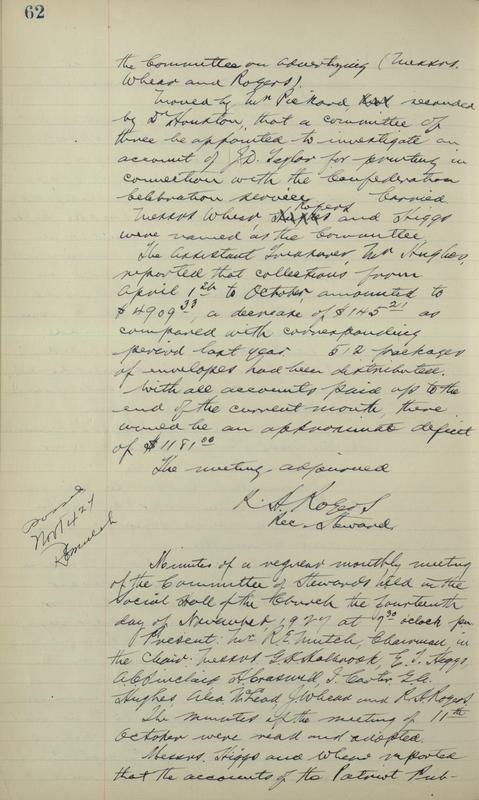 62
the Committee on advertizing (Messrs.
Whear and Rogers).
Moved by Mr Pickard seconded
by Dr Houston, that a committee of
three be appointed to investigate an
account of J.D. Taylor for printing in
connection with the Confederation
Celebration service Carried
Messrs Whear Rogers and Higgs
were named as the Committee
The Assistant Treasurer, Mr Hughes,
reported that collections from
April 1st to October, amounted to
$4909.33, a decrease of $145.21 as
compared with corresponding
period last year. 512 packages
of envelopes had been distributed.
With all accounts paid up to the
end of the current month, there
would be an approximate deficit
of $1181.00
The meeting adjourned
R. A. Rogers
Rec. Steward.
Nov 14 27
Minutes of a regular monthly meeting
of the Committee of Stewards held in the
Social Hall of the Church the fourteenth
day of November, 1927 at 7.30 oclock pm.
Present: Mr. R.E. Mutch, Chairman, in
the Chair. Messrs G.D. Holbrook, E.T. Higgs,
A.C. Sinclair, H. Craswell, J. Carter, E.A.
Hughes, Alex McLeod, J. Whear and R.A. Rogers
The minutes of the meeting of 11th
October were read and adopted.
Messrs. Higgs and Whear reported
that the accounts of the Patriot Pub-